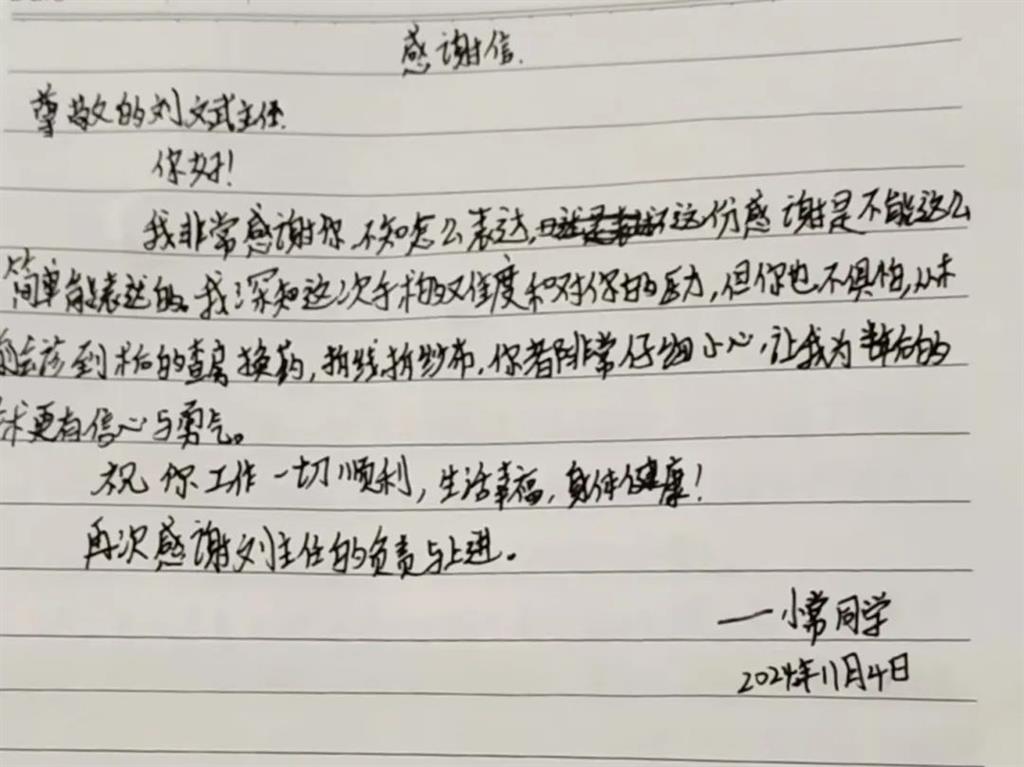 感谢信.
尊敬的刘文武主任.
你好!
我非常感谢你,不知怎么表达,这份感谢是不能这么
简单能表达的。我深知这次手术的难度和对你的压力,但你也不惧怕,从术
前会诊到术后的查房换药,拆线拆纱布,你都非常仔细小心,让我为年后的
术更有信心与勇气。
祝你工作一切顺利,生活幸福,身体健康!
再次感谢刘主任的负责与上进。
—小常同学
2024年11月4日